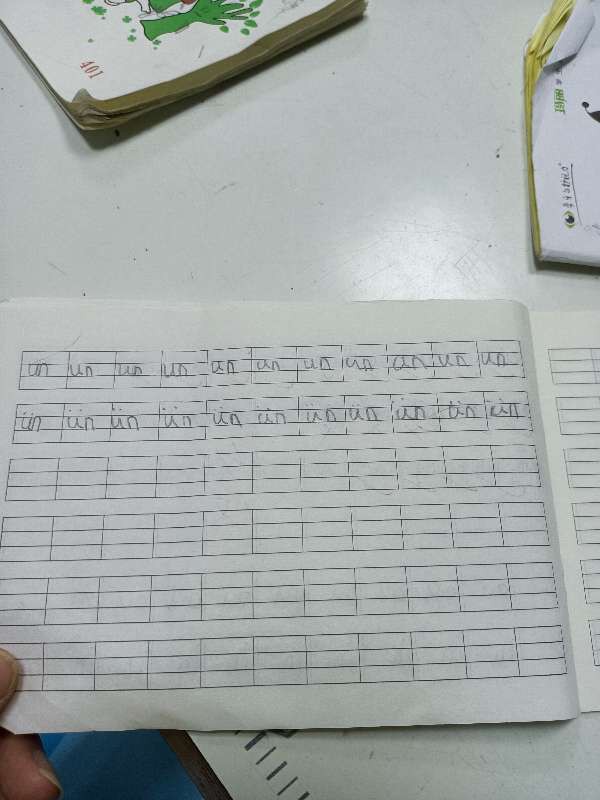 401
un un un un un un un un un un un
ün ün ün ün ün ün ün ün ün ün ün